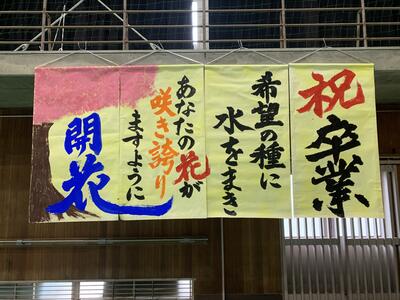 祝卒業
希望の種に
水をまき
あなたの花が
咲き誇り
ますように
開花